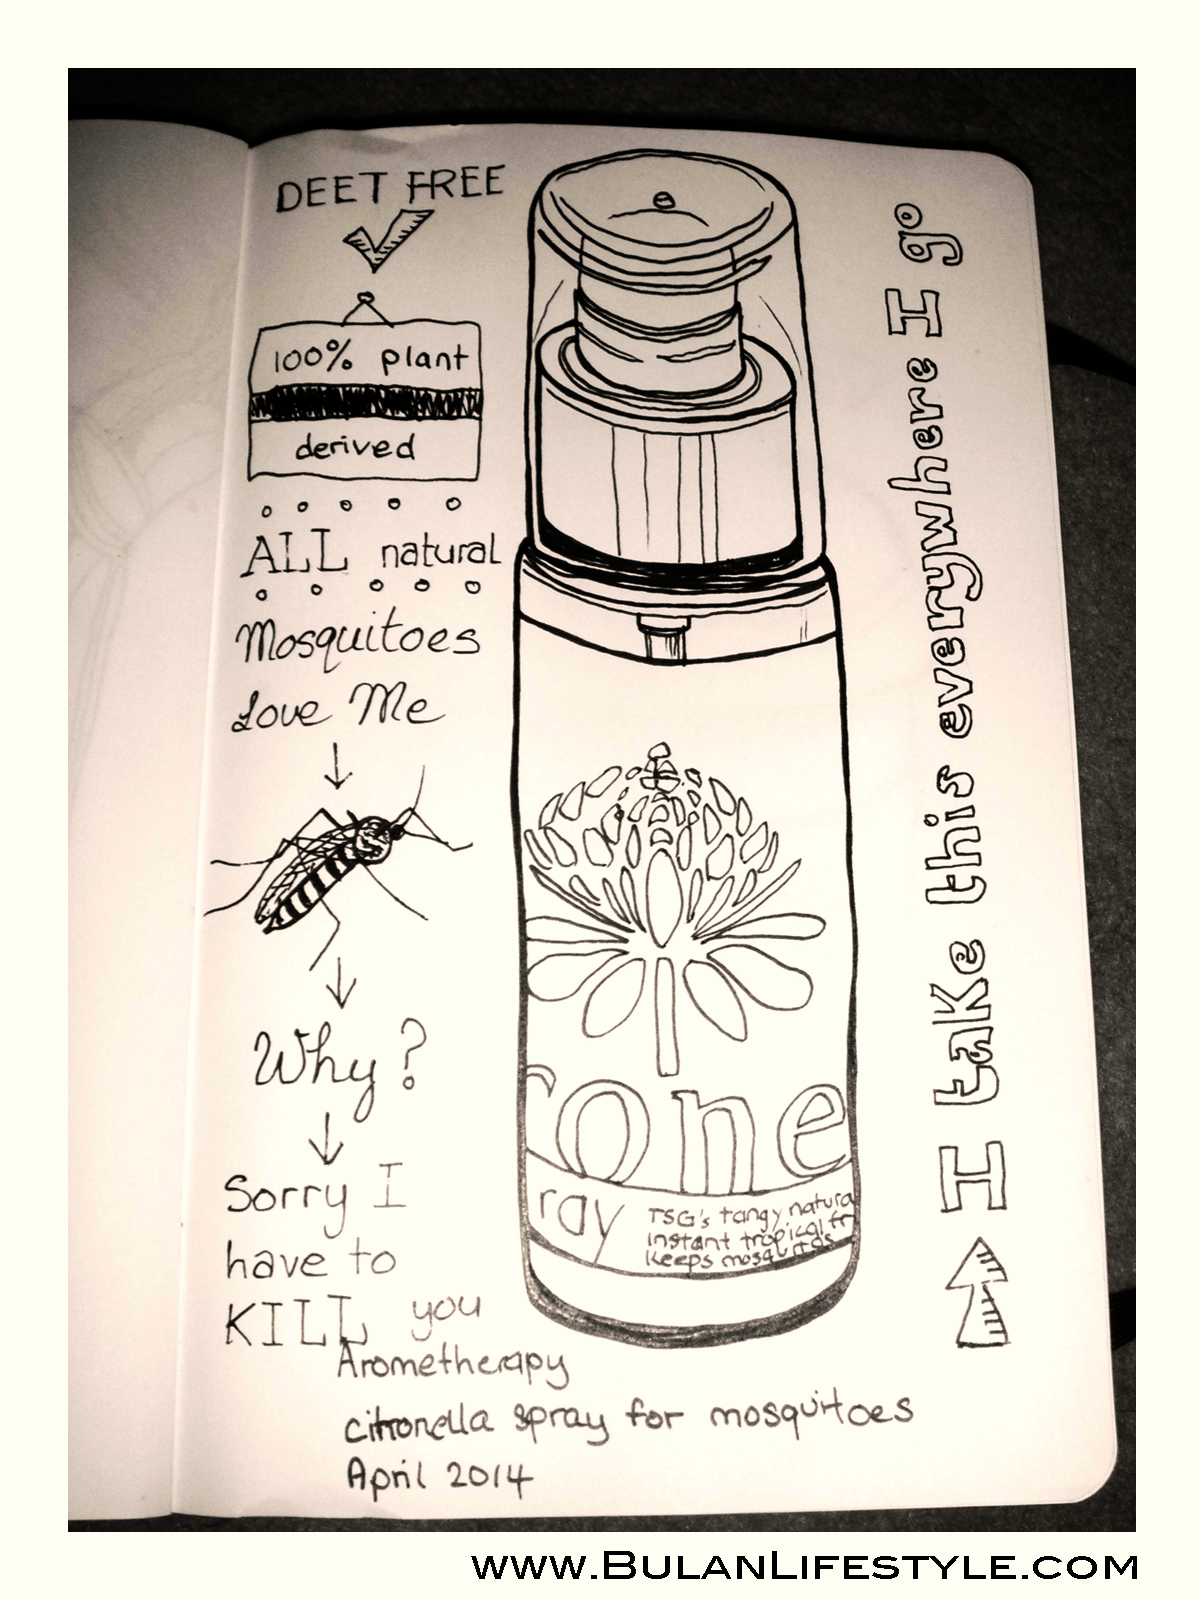 DEET FREE
100% plant
derived
ALL natural
Mosquitoes
Love Me
Why?
Sorry I
have to
KILL you
rone
ray
TSG's tangy natura
instant tropical fr
Keeps mosquitos
I take this everywhere I go
Arometherapy
citronella spray for mosquitoes
April 2014
www.BulanLifestyle.com